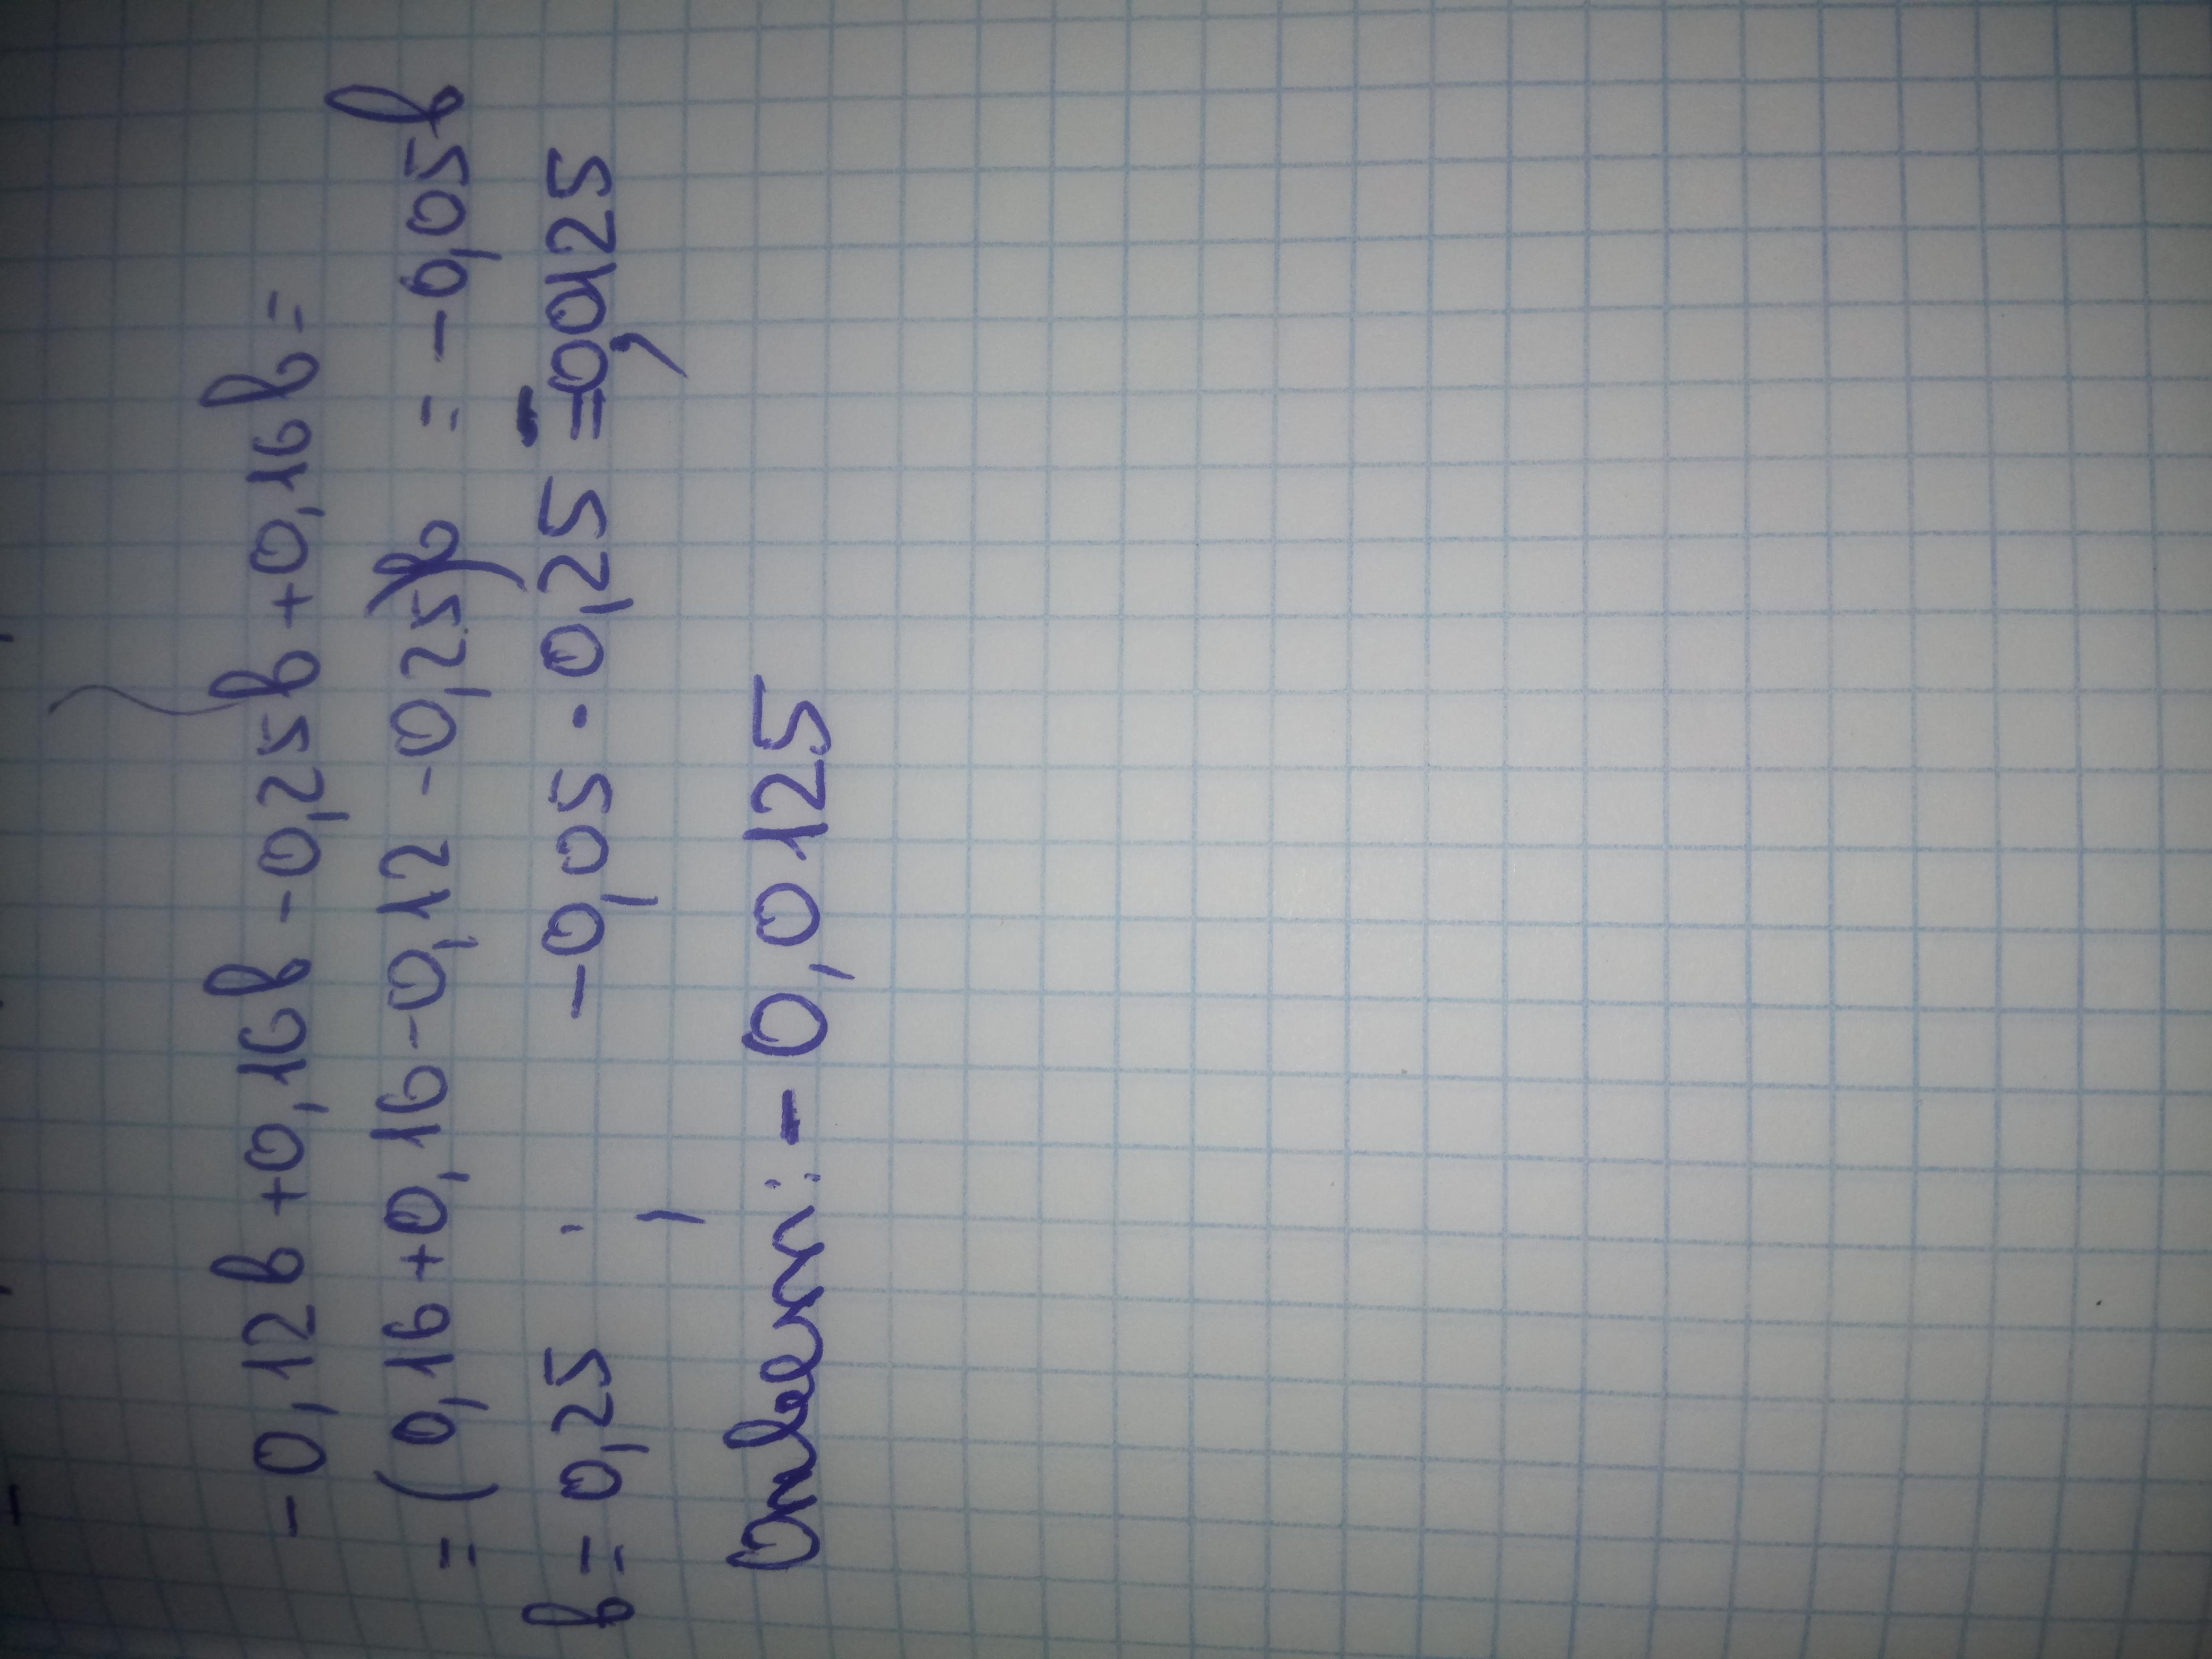 -0,12в+0,16в-0,25в+0,16в=
=(0,16+0,16-0,12-0,25)в = -0,05в
в=0,25 -0,05·0,25=-0,0125
Ответ: -0,0125